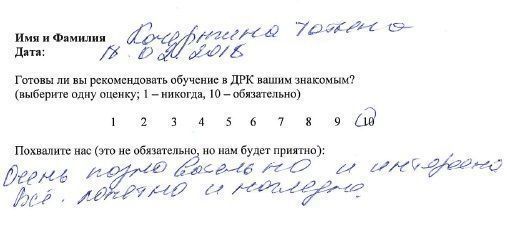 Имя и Фамилия Кочарьгина Татьяна
Дата: 18.02.2016
Готовы ли вы рекомендовать обучение в ДРК вашим знакомым?
(выберите одну оценку; 1 – никогда, 10 – обязательно)
1 2 3 4 5 6 7 8 9 10
Похвалите нас (это не обязательно, но нам будет приятно):
Очень познавательно и интересно
Всё понятно и наглядно.